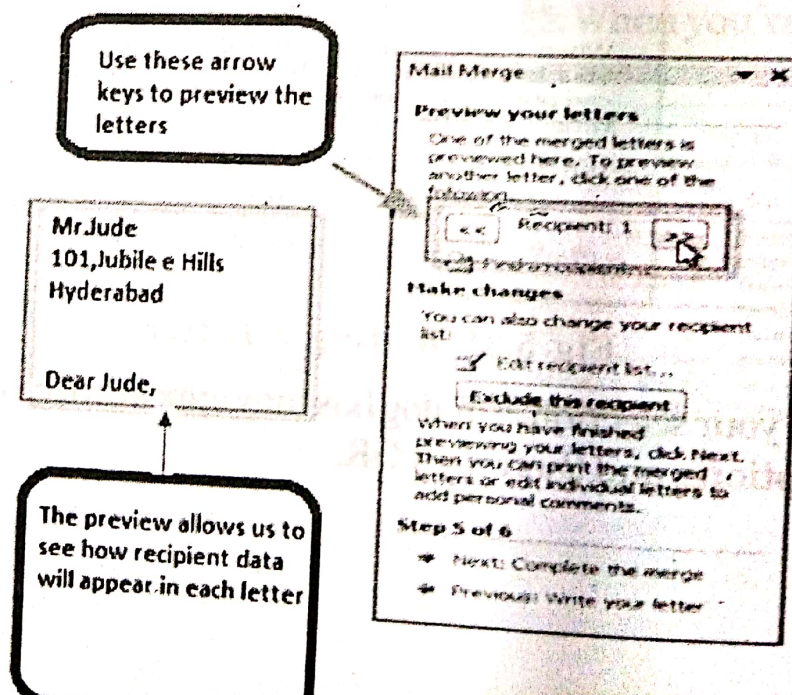 When you're
Use these arrow
keys to preview the
letters
Mr.Jude
101,Jubile e Hills
Hyderabad
Dear Jude,
The preview allows us to
see how recipient data
will appear.in each letter
Mail Merge
Preview your letters
One of the merged letters is
previewed here. To preview
another letter, click one of the
following
<< Recipient: 1 >>
Find a recipient...
Make changes
You can also change your recipient
list:
Edit recipient list...
Exclude this recipient
When you have finished
previewing your letters, click Next.
Then you can print the merged
letters or edit individual letters to
add personal comments.
Step 5 of 6
Next: Complete the merge
Previous: Write your letter
your